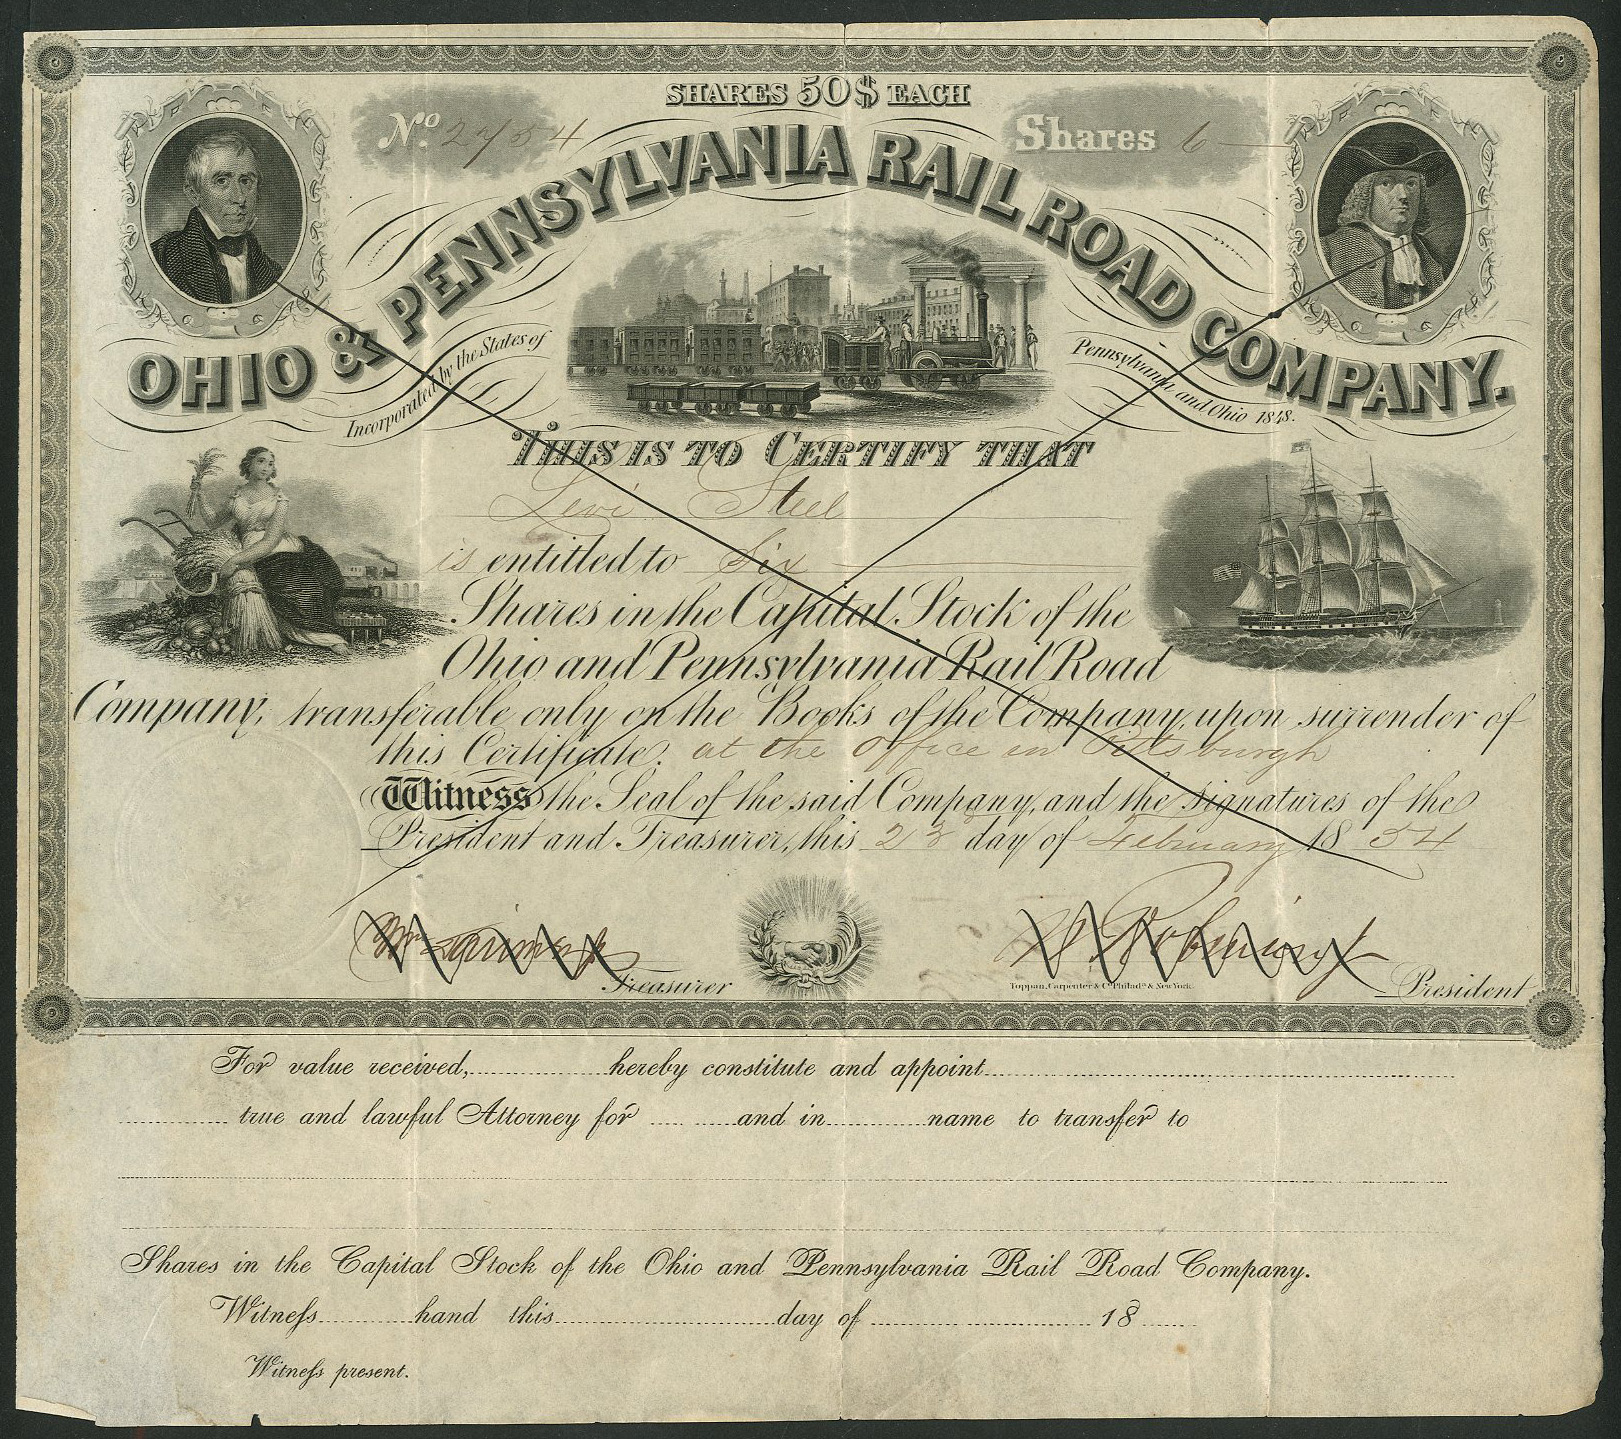 SHARES 50$ EACH
No. 2754
Shares 6
OHIO & PENNSYLVANIA RAIL ROAD COMPANY.
Incorporated by the States of
Pennsylvania and Ohio 1848.
THIS IS TO CERTIFY THAT
Levi Steel
is entitled to Six
Shares in the Capital Stock of the
Ohio and Pennsylvania Rail Road
Company, transferable only on the Books of the Company, upon surrender of
this Certificate. at the Office in Pittsburgh
Witness the Seal of the said Company, and the signatures of the
President and Treasurer, this 23 day of February 1854
Wm Larimer Jr
Treasurer
Toppan, Carpenter & Co. Philada. & New York.
President
For value received, hereby constitute and appoint
true and lawful Attorney for and in name to transfer to
Shares in the Capital Stock of the Ohio and Pennsylvania Rail Road Company.
Witness hand this day of 18
Witness present.